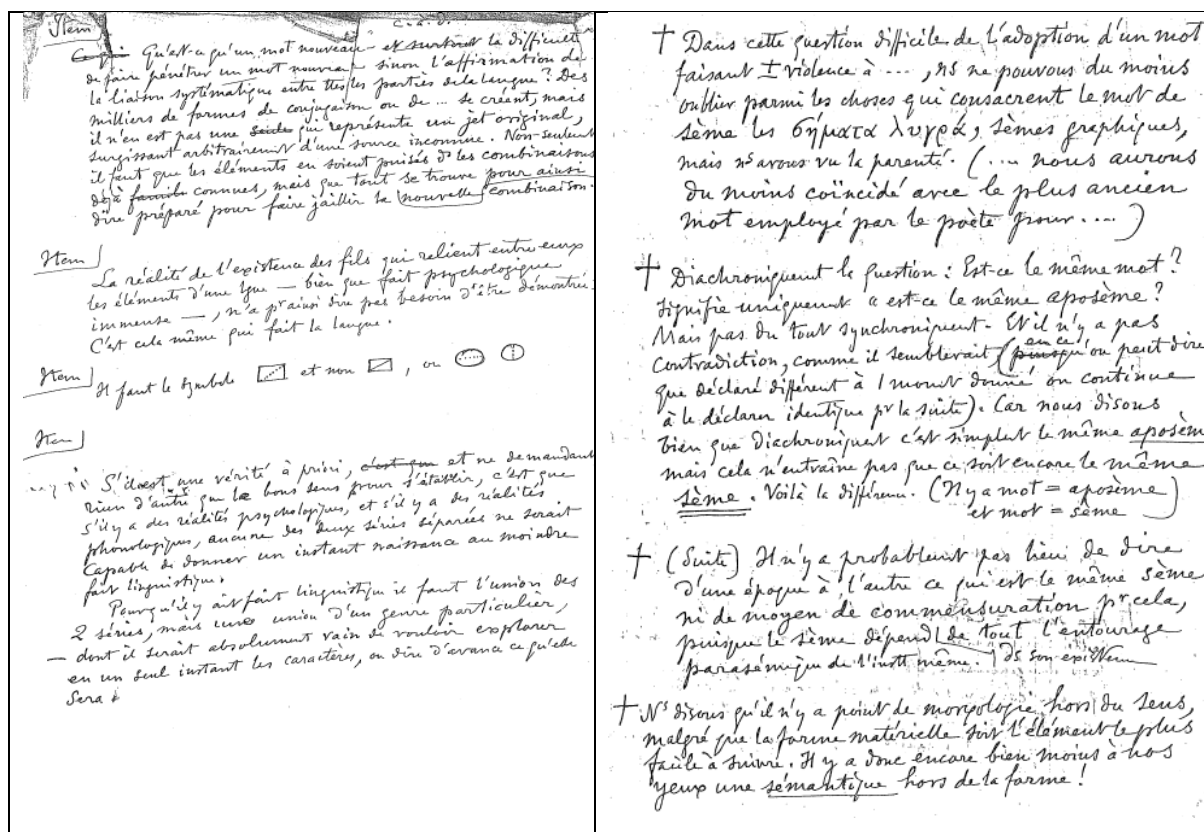 Item
c. à. d.
Qu'est-ce qu'un mot nouveau - et surtout la difficulté
de faire pénétrer un mot nouveau sinon l'affirmation de
la liaison systématique entre ttes les parties de la langue? Des
milliers de formes de conjugaison ou de ... se créent, mais
il n'en est pas une seule qui représente un jet original,
surgissant arbitrairement d'une source inconnue. Non-seulemt
il faut que les éléments en soient puisés ds les combinaisons
déjà connues, mais que tout se trouve pour ainsi
dire préparé pour faire jaillir la nouvelle combinaison.
Item
La réalité de l'existence des fils qui relient entre eux
les éléments d'une lgue — bien que fait psychologique
immense —, n'a pr ainsi dire pas besoin d'être démontrée.
C'est cela même qui fait la langue.
Item
Il faut le symbole et non , ou
Item
S'il est une vérité à priori, c'est que et ne demandant
rien d'autre que le bon sens pour s'établir, c'est que
s'il y a des réalités psychologiques, et s'il y a des réalités
phonologiques, aucune des deux séries séparées ne serait
capable de donner un instant naissance au moindre
fait linguistique.
Pour qu'il y ait fait linguistique il faut l'union des
2 séries, mais une union d'un genre particulier,
— dont il serait absolument vain de vouloir explorer
en un seul instant les caractères, ou dire d'avance ce qu'elle
sera.
† Dans cette question difficile de l'adoption d'un mot
faisant ± violence à ...., ns ne pouvons du moins
oublier parmi les choses qui consacrent le mot de
sème les σήματα λυγρά, sèmes graphiques,
mais ns avons vu la parenté. (... nous aurons
du moins coïncidé avec le plus ancien
mot employé par le poète pour ....)
† Diachroniquemt la question : Est-ce le même mot?
signifie uniquemt « est-ce le même aposème?
Mais pas du tout synchroniquemt. Et il n'y a pas
contradiction, comme il semblerait (puisqu' en ce qu'on peut dire
que déclaré différent à 1 momt donné on continue
à le déclarer identique pr la suite). Car nous disons
bien que Diachroniquemt c'est simplemt le même aposème
mais cela n'entraîne pas que ce soit encore le même
sème. Voilà la différence. (Il y a mot = aposème
et mot = sème)
† (Suite) Il n'y a probablemt pas lieu de dire
d'une époque à l'autre ce qui est le même sème
ni de moyen de commensuration pr cela,
puisque le sème dépend de tout l'entourage
parasémique de l'instt même. ds son existence
† Ns disons qu'il n'y a point de morpologie hors du sens,
malgré que la forme matérielle soit l'élément le plus
facile à suivre. Il y a donc encore bien moins à nos
yeux une sémantique hors de la forme!